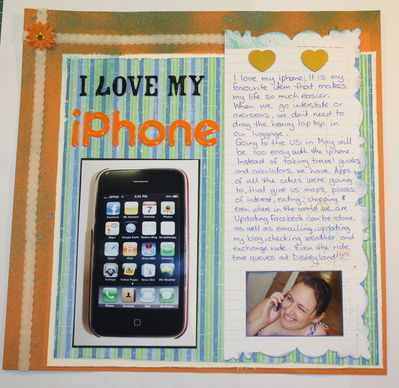 I LOVE MY
iPhone
I love my iphone. It is my
favourite item that makes
my life so much easier.
When we go interstate or
overseas, we don't need to
drag the heavy laptop in
our luggage.
Going to the US in May will
be too easy with the iphone.
Instead of taking travel guides
and calculators, we have Apps
of all the cities were going
to, that give us maps, places
of interest, eating, shopping &
even where in the world we are.
Updating Facebook can be done
as well as emailing, updating
my blog, checking weather and
exchange rate. Even the ride
time queues at Disneyland!!!